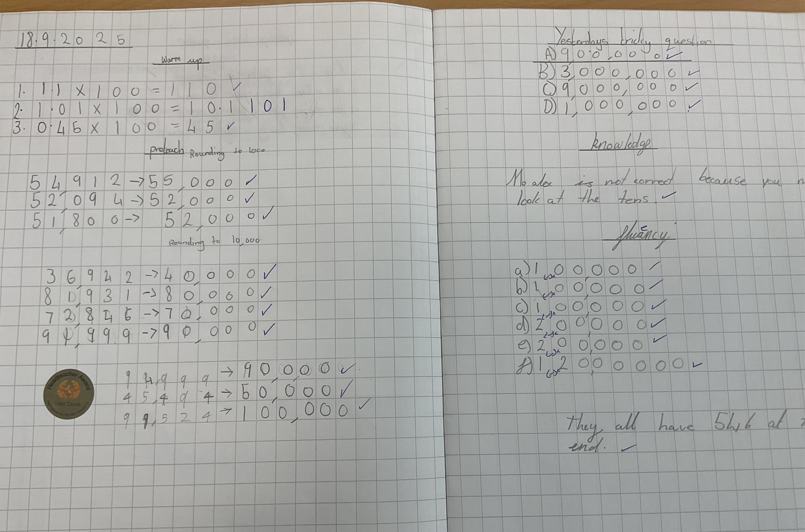 18.9.2025
Warm up
1. 11 x 100 = 110 ✓
2. 1.01 x 100 = 10.1 101
3. 0.45 x 100 = 45 ✓
Rounding to
54912 → 55,000 ✓
52,094 → 52,000 ✓
51,800 → 52,000 ✓
Rounding to 10,000
36,942 → 40,000 ✓
80,931 → 80,000 ✓
72,846 → 70,000 ✓
→ 90,000 ✓
94,999 → 90,000 ✓
45,494 → 50,000 ✓
99,524 → 100,000 ✓
Yesterdays tricky question
A) 900,000 ✓
B) 3,000,000 ✓
C) 9000,000 ✓
D) 1,000,000 ✓
knowledge
Mo is not correct because you
look at the tens ✓
fluency
a) 1,00000 ✓
b) 1,00000 ✓
c) 1,00000 ✓
d) 2,00000 ✓
e) 200,000 ✓
f) 1,2000000 ✓
They all have at
end. ✓